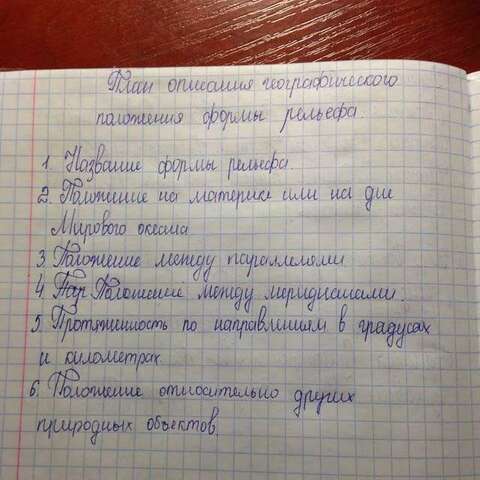 План описания географического
положения формы рельефа.
1. Название формы рельефа.
2. Положение на материке или на дне
Мирового океана
3. Положение между параллелями
4. Пар Положений между меридианами.
5. Протяженность по направлниям в градусах
и километрах
6. Положение относительно других
природных объектов.